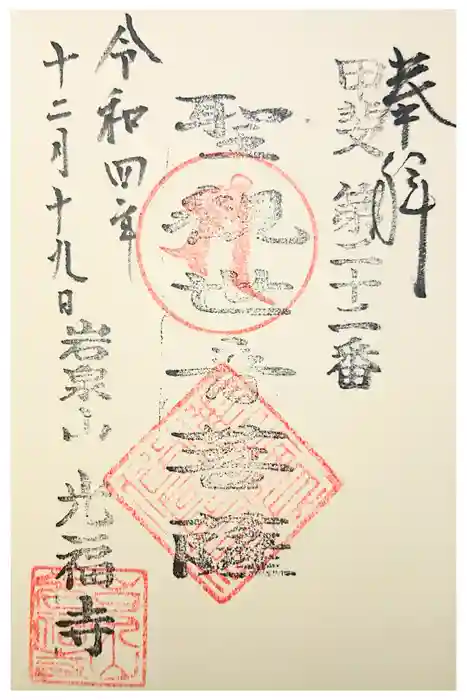 奉拝
甲斐第二十二番
聖観世音菩薩
令和四年
十二月十九日
岩泉山 光福寺